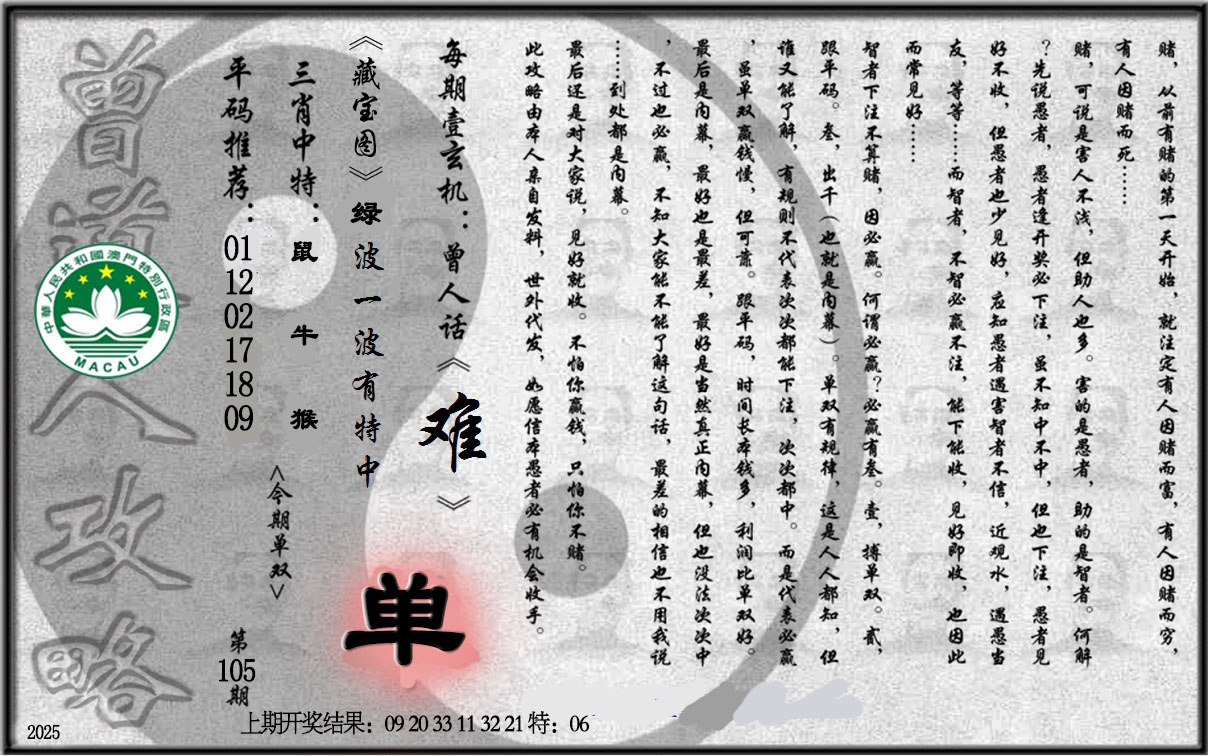 赌，从前有赌的第一天开始，就注定有人因赌而富，有人因赌而穷，
有人因赌而死……
赌，可说是害人不浅，但助人也多。害的是愚者，助的是智者。何解
？先说愚者，愚者逢开奖必下注，虽不知中不中，但也下注，愚者见
好不收，但愚者也少见好，应知愚者遇害智者不信，近观水，遇愚当
友，等等……而智者，不智必赢不注，能下能收，见好即收，也因此
而常见好……
智者下注不算赌，因必赢。何谓必赢？必赢有叁。壹，搏单双。贰，
跟平码。叁，出千（也就是内幕）。单双有规律，这是人人都知，但
谁又能了解，有规则不代表次次都能下注，次次都中。而是代表必赢
，虽单双赢钱慢，但可靠。跟平码，时间长本钱多，利润比单双好。
最后是内幕，最好也是最差，最好是当然真正内幕，但也没法次次中
，不过也必赢，不知大家能不能了解这句话，最差的相信也不用我说
……到处都是内幕。
最后还是对大家说，见好就收。不怕你赢钱，只怕你不赌。
此攻略由本人亲自发料，世外代发，如愿信本愚者必有机会收手。
每期壹玄机：曾人话《难》
《藏宝图》绿波一波有特中
单
三肖中特：鼠 牛 猴
<今期单双>
平码推荐：01 12 02 17 18 09
第105期
曾道人攻略
中華人民共和國澳門特別行政區
MACAU
上期开奖结果：09 20 33 11 32 21 特：06
2025